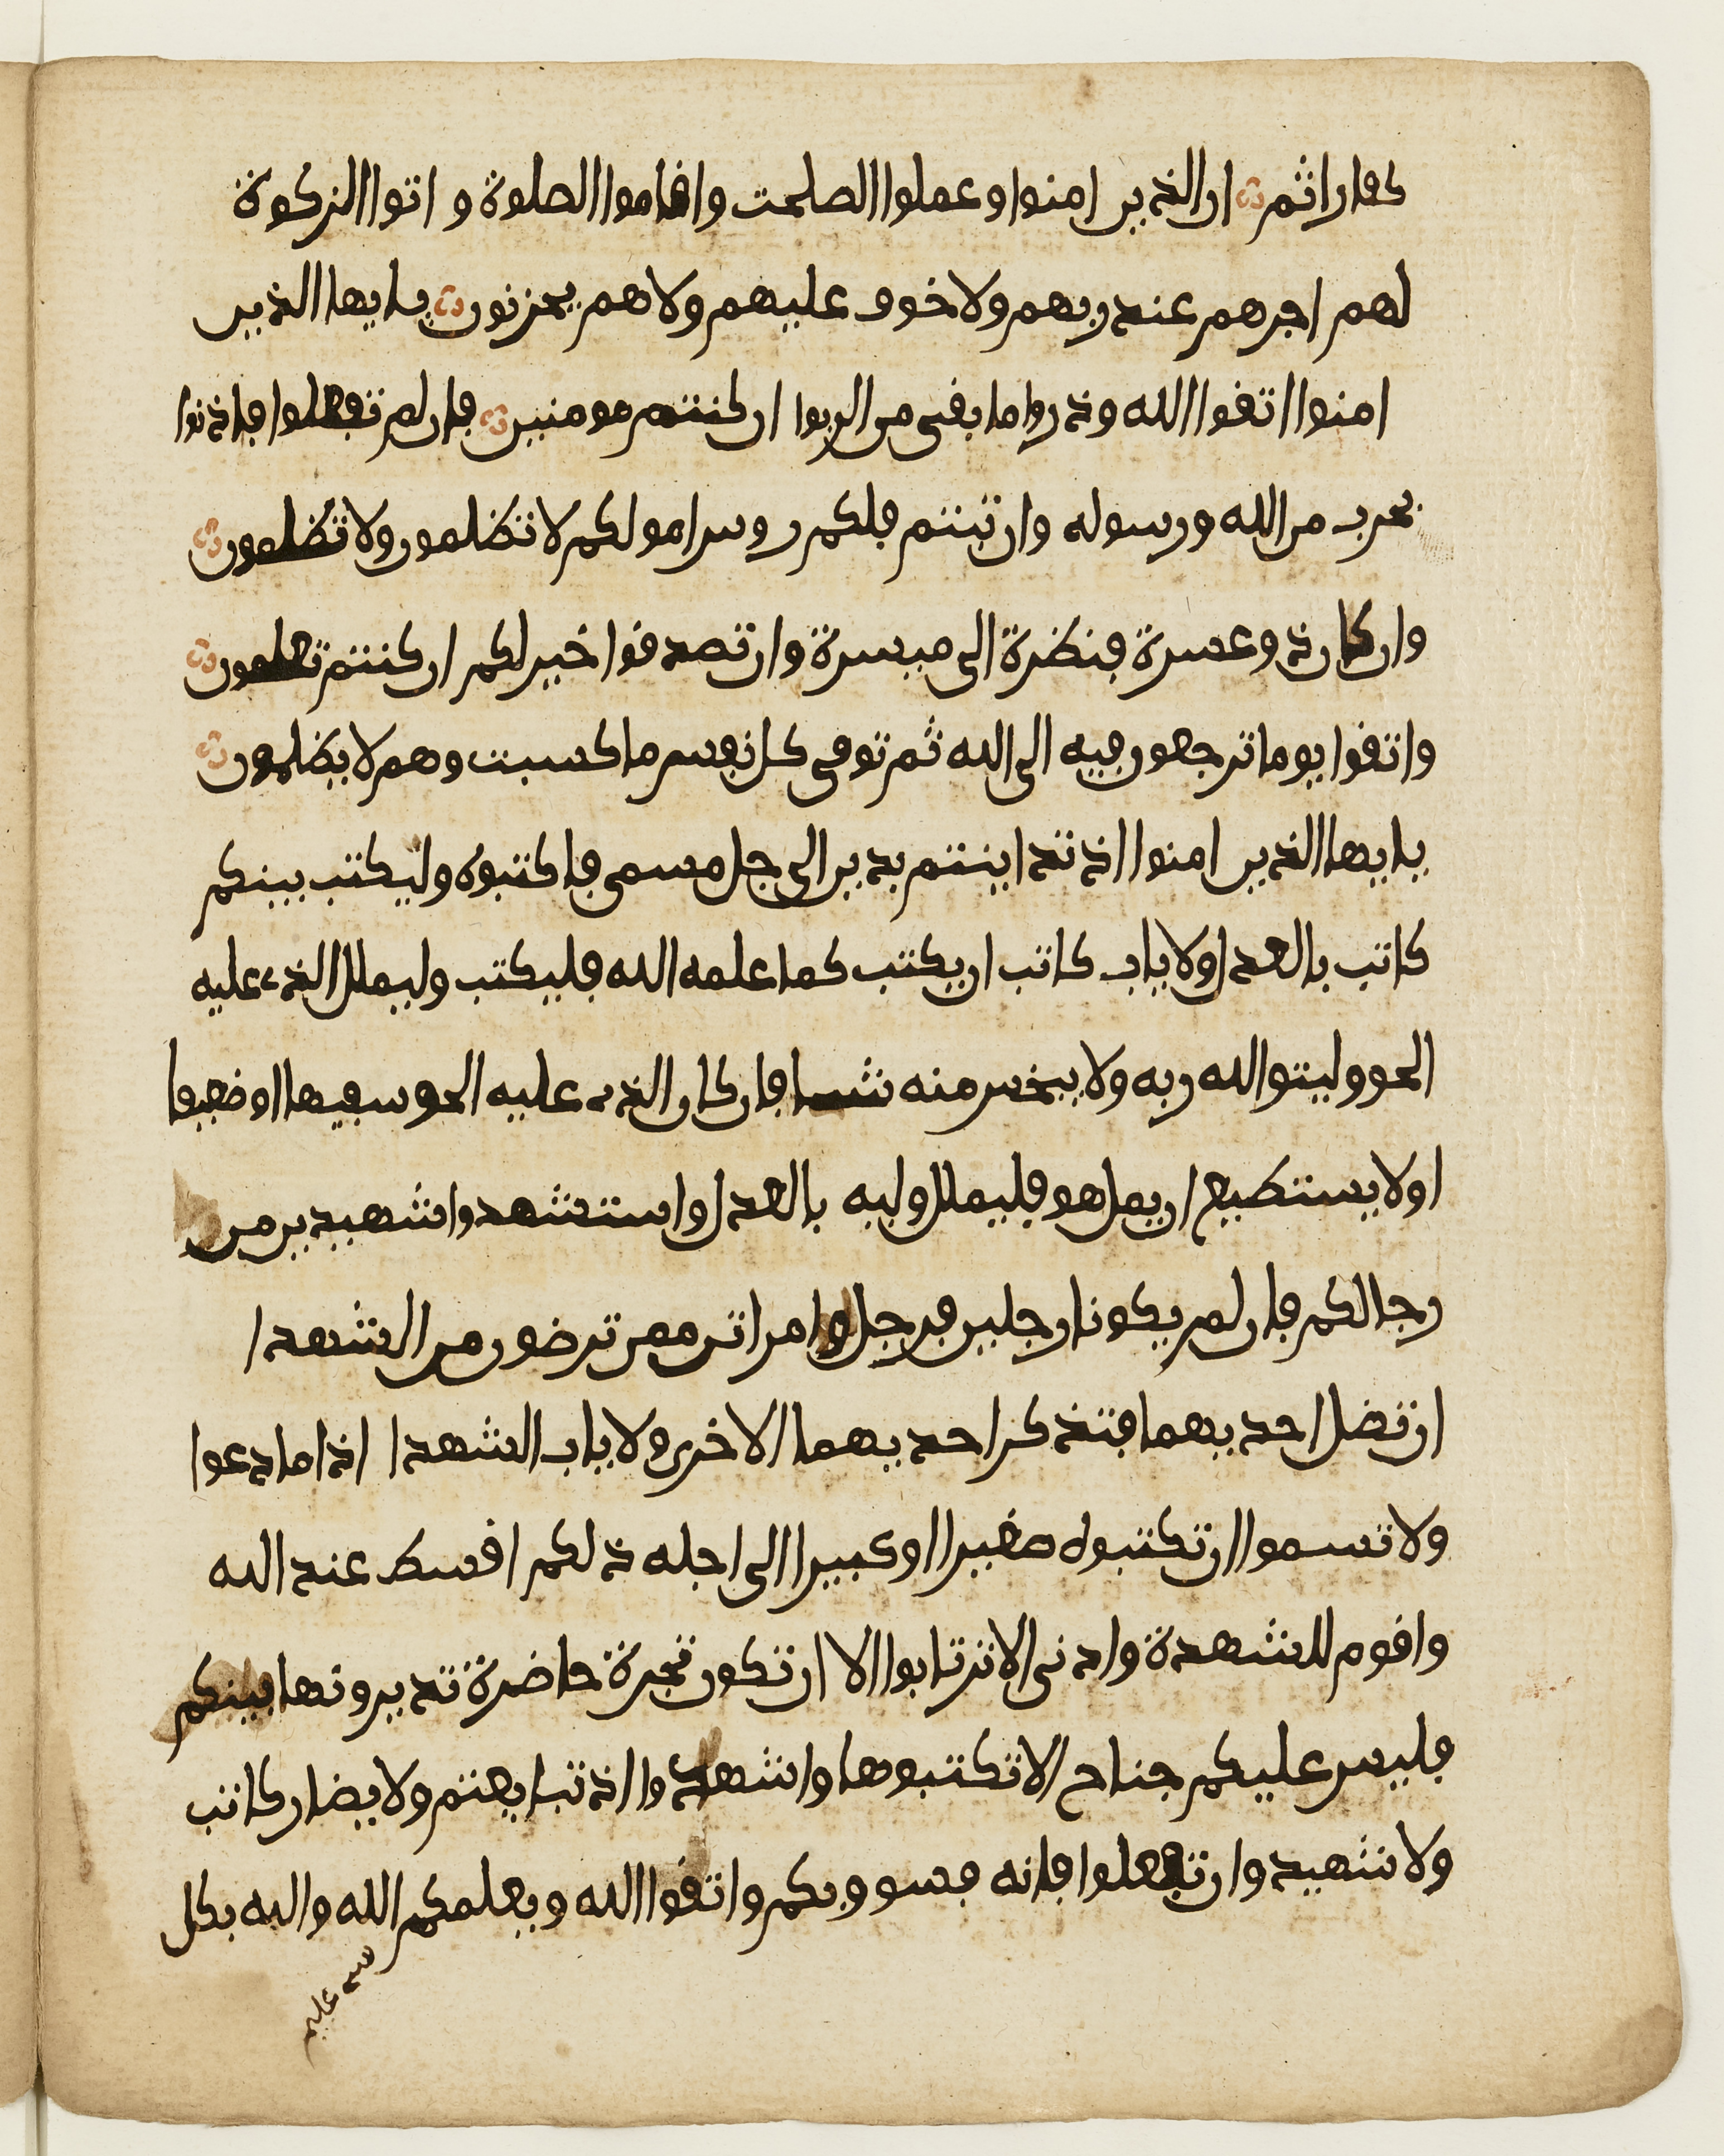 كفار اثيم ان الذين امنوا وعملوا الصلحت واقاموا الصلوة واتوا الزكوة
لهم اجرهم عند ربهم ولا خوف عليهم ولا هم يحزنون يايها الذين
امنوا اتقوا الله وذروا ما بقى من الربوا ان كنتم مومنين فان لم تفعلوا فاذنوا
بحرب من الله ورسوله وان تبتم فلكم روس امولكم لا تظلمون ولا تظلمون
وان كان ذو عسرة فنظرة الى ميسرة وان تصدقوا خير لكم ان كنتم تعلمون
واتقوا يوما ترجعون فيه الى الله ثم توفى كل نفس ما كسبت وهم لا يظلمون
يايها الذين امنوا اذ تداينتم بدين الى جل مسمى فاكتبوه وليكتب بينكم
كاتب بالعدل ولا ياب كاتب ان يكتب كما علمه الله فليكتب وليملل الذى عليه
الحق وليتق الله ربه ولا يبخس منه شيا فان كان الذى عليه الحق سفيها او ضعيفا
او لا يستطيع ان يمل هو فليملل وليه بالعدل واستشهدوا شهيدين من
رجالكم فان لم يكونا رجلين فرجل وامراتن ممن ترضون من الشهدا
ان تضل احديهما فتذكر احديهما الاخرى ولا ياب الشهدا اذا ما دعوا
ولا تسموا ان تكتبوه صغيرا او كبيرا الى اجله ذلكم اقسط عند الله
واقوم للشهدة وادنى الا ترتابوا الا ان تكون تجرة حاضرة تديرونها بينكم
فليس عليكم جناح الا تكتبوها واشهدوا اذ تبايعتم ولا يضار كاتب
ولا شهيد وان تفعلوا فانه فسوق بكم واتقوا الله ويعلمكم الله والله بكل
شى عليم